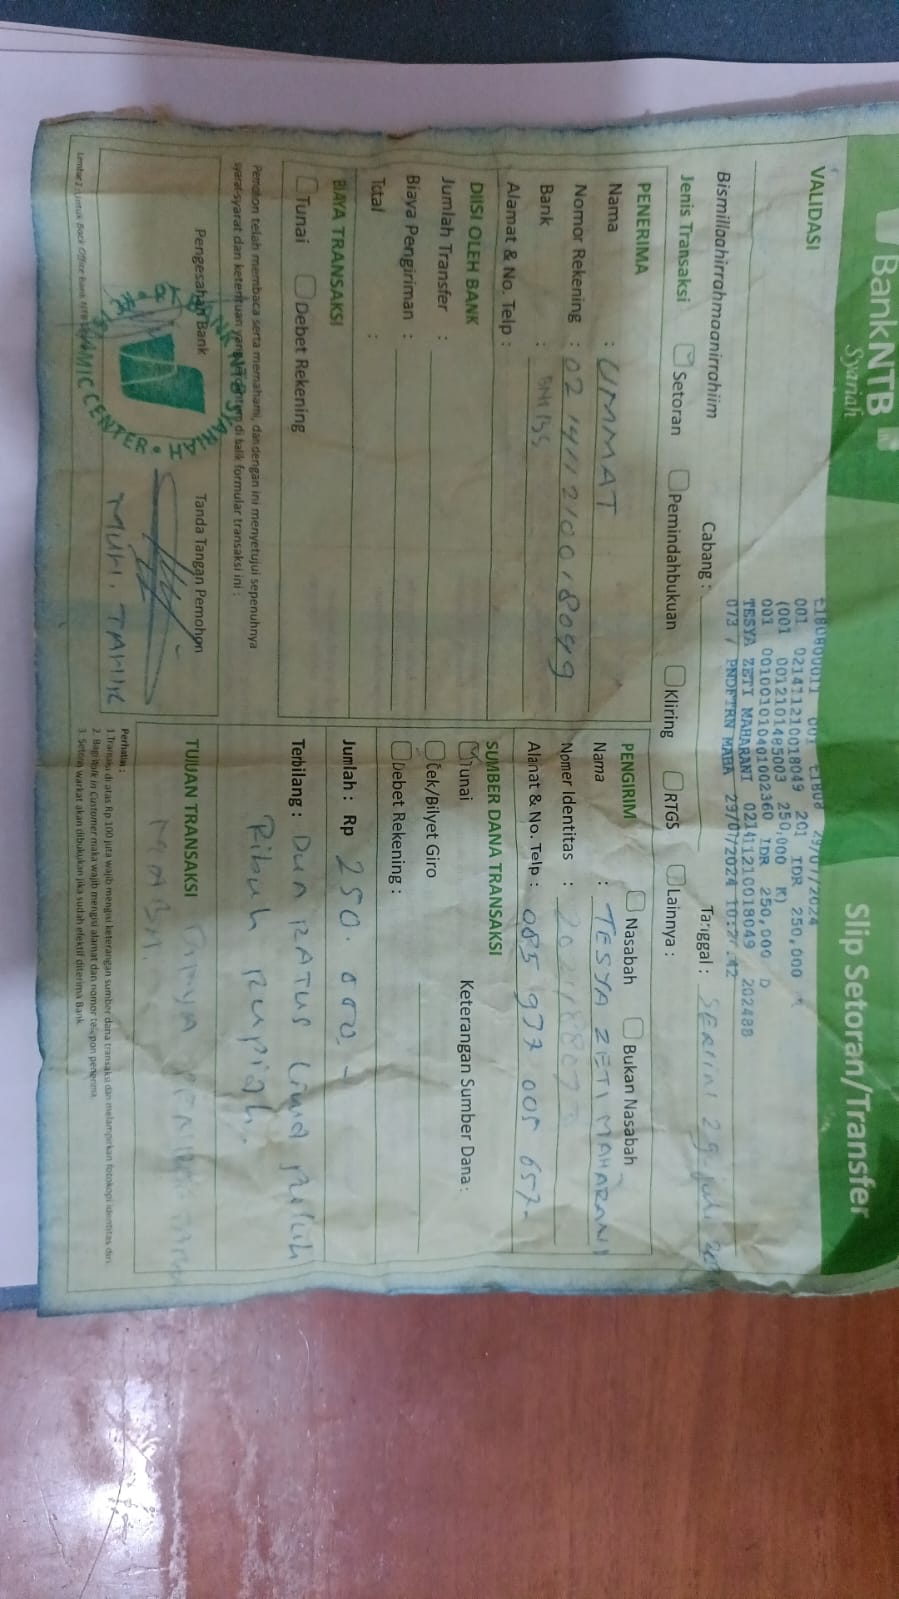 BankNTB
Syariah
Slip Setoran/Transfer
VALIDASI
001 021411210018049 201 IDR 250,000
(001 0012101485003 250,000 K)
001 001001010401002360 IDR 250,000 D
TESYA ZETI MAHARANI 021411210018049 202488
073 / PNDFTRN MABA 29/07/2024 10:27:42
Bismillaahirrahmaanirrahiim
Cabang :
Tanggal : SENIN 29 juli
Jenis Transaksi Setoran Pemindahbukuan Kliring RTGS Lainnya :
PENERIMA
Nama : UMMAT
Nomor Rekening : 02 1411 2100 18049
Bank :
Alamat & No. Telp :
PENGIRIM Nasabah Bukan Nasabah
Nama : TESYA ZETI MAHARANI
Nomer Identitas :
Alamat & No. Telp : 085 937 005 657
DIISI OLEH BANK
Jumlah Transfer :
Biaya Pengiriman :
Total :
SUMBER DANA TRANSAKSI
Tunai Keterangan Sumber Dana :
Cek/Bilyet Giro
Debet Rekening :
BIAYA TRANSAKSI
Tunai Debet Rekening
Jumlah : Rp 250.000,-
Terbilang : Dua RATUS Lima puluh
Ribuh Rupiah,
Pemohon telah membaca serta memahami, dan dengan ini menyetujui sepenuhnya
syarat-syarat dan ketentuan yang di balik formular transaksi ini :
Pengesahan Bank
Tanda Tangan Pemohon
BANK NTB SYARIAH
ISLAMIC CENTER
TUJUAN TRANSAKSI
MABA.
Perhatian :
1. Transaksi di atas Rp 100 juta wajib mengisi keterangan sumber dana transaksi dan melampirkan fotokopi identitas diri
2. Bagi Walk in Customer maka wajib mengisi alamat dan nomor telepon penerima
3. Setoran warkat akan dibukukan jika sudah efektif diterima Bank